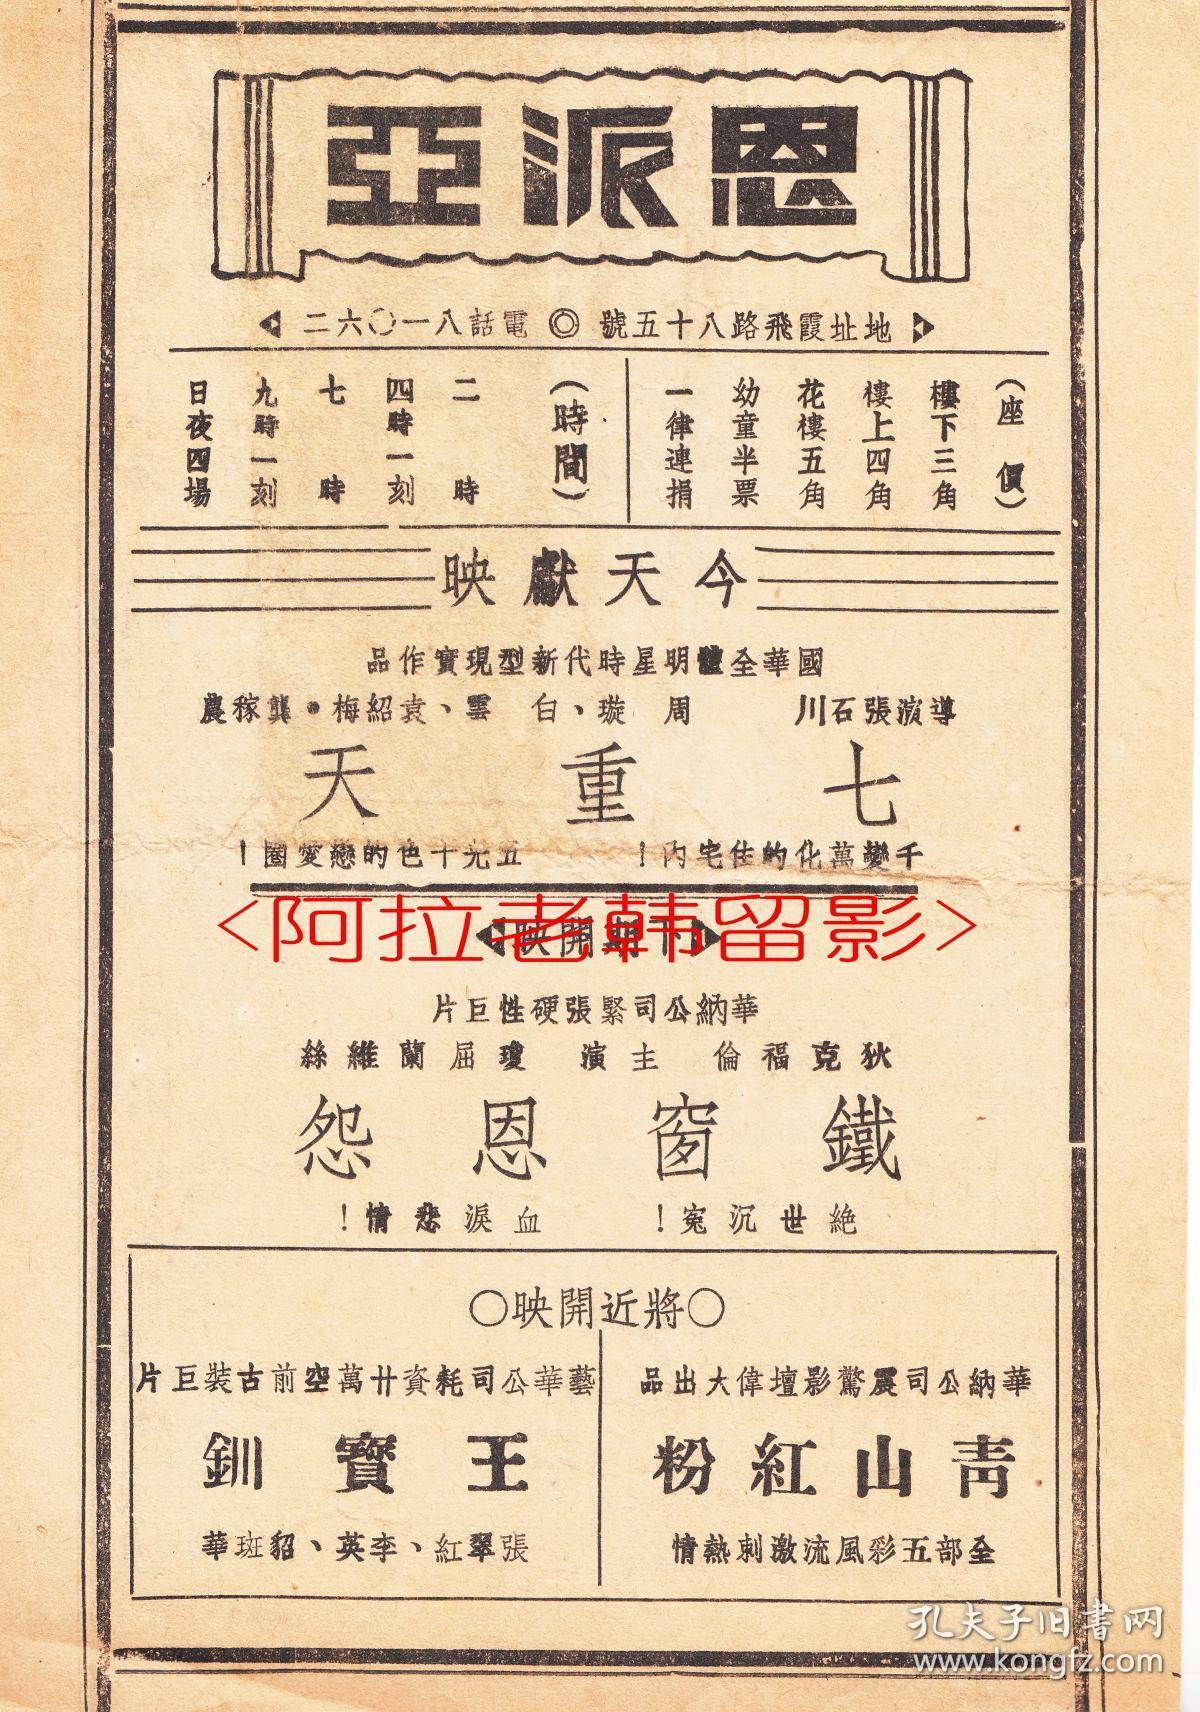 恩派亞
地址霞飛路八十五號 ◎ 電話八一〇六二
（座價）
樓下三角
樓上四角
花樓五角
幼童半票
一律連捐
（時間）
二時
四時一刻
七時
九時一刻
日夜四場
今天獻映
國華全體明星時代新型現實作品
導演張石川 周璇、白雲、袁紹梅·龔稼農
七重天
千變萬化的住宅內！ 五光十色的戀愛圈！
下期開映
<阿拉老韩留影>
華納公司緊張硬性巨片
狄克福倫 主演 瓊屈蘭維絲
鐵窗恩怨
絕世沉冤！ 血淚悲情！
○將近開映○
華納公司震驚影壇偉大出品
青山紅粉
全部五彩風流激刺熱情
藝華公司耗資廿萬空前古裝巨片
王寶釧
張翠紅、李英、貂斑華
孔夫子旧书网
www.kongfz.com